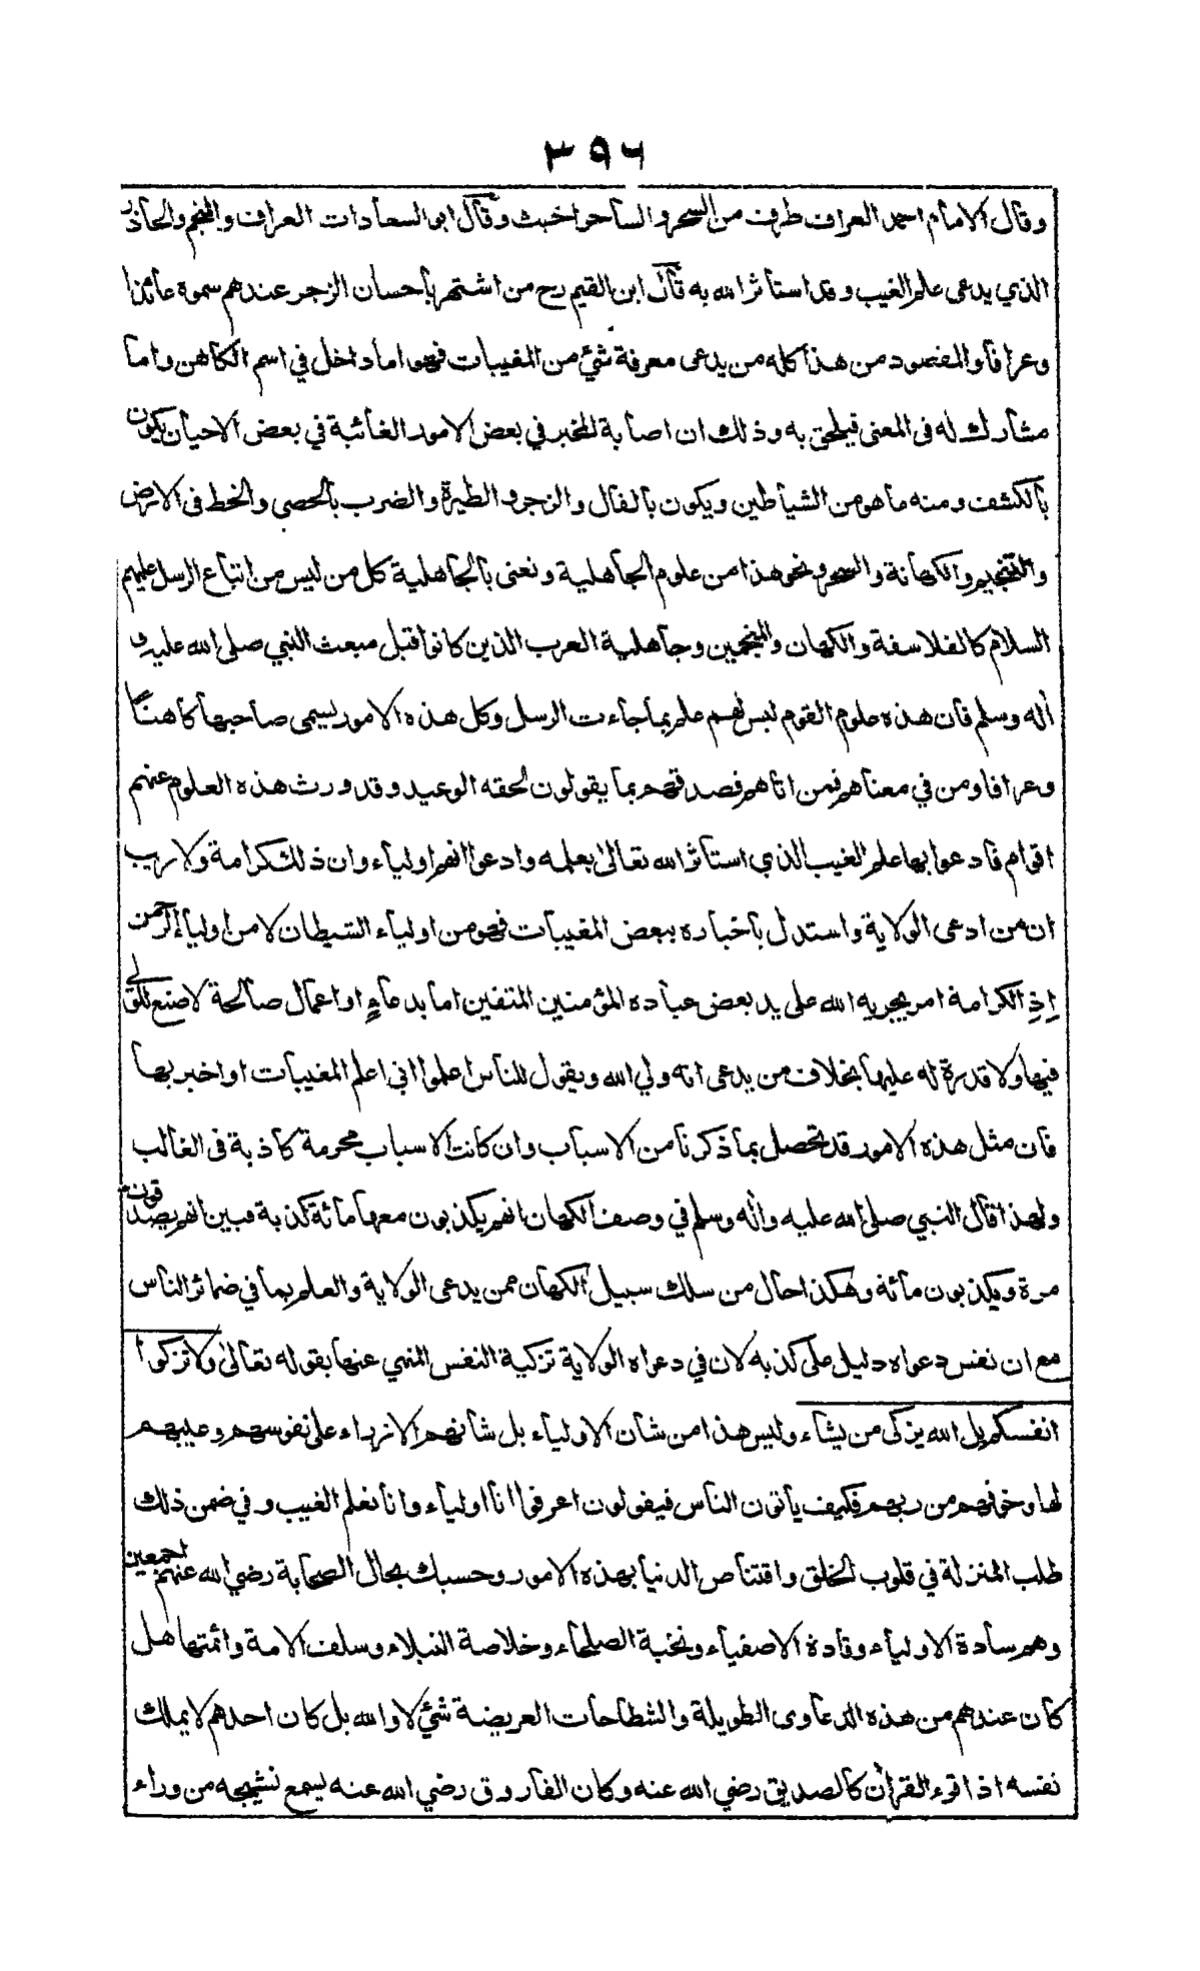 ٣٩٦
وقال الامام احمد العراف طرف من السحر والساحر اخبث وقال ابو السعادات العراف والمنجم والحاذر
الذي يدعى علم الغيب وقد استأثر الله به قال ابن القيم رح من اشتهر بأحسان الزجر عندهم سموه عائفا
وعرافا والمقصود من هذا كله من يدعى معرفة شئ من المغيبات فهو اما داخل في اسم الكاهن واما
مشارك له فى المعنى فيلحق به وذلك ان اصابة المخبر في بعض الامور الغائبة في بعض الاحيان يكون
بالكشف ومنه ما هو من الشياطين ويكون بالفال والزجر والطيرة والضرب بالحصى والخط فى الارض
والتنجيم والكهانة والسحر ونحو هذا من علوم الجاهلية ونعنى بالجاهلية كل من ليس من اتباع الرسل عليهم
السلام كالفلاسفة والكهان والمنجمين وجاهلية العرب الذين كانوا قبل مبعث النبي صلى الله عليه و
اله وسلم فان هذه علوم القوم ليس لهم علم بما جاءت الرسل وكل هذه الامور يسمى صاحبها كاهنا
وعرافا ومن في معناهم فمن اتاهم فصدقهم بما يقولون لحقه الوعيد وقد ورث هذه العلوم عنهم
اقوام فادعوا بها علم الغيب الذي استأثر الله تعالى بعلمه وادعوا انهم اولياء وان ذلك كرامة ولا ريب
ان من ادعى الولاية واستدل بأخباره ببعض المغيبات فهو من اولياء الشيطان لا من اولياء الرحمن
اذ الكرامة امر يجريه الله على يد بعض عباده المؤمنين المتقين اما بدعاء او اعمال صالحة لا صنع للولي
فيها ولا قدرة له عليها بخلاف من يدعى انه ولي الله ويقول للناس اعلموا انى اعلم المغيبات او اخبر بها
فان مثل هذه الامور قد تحصل بما ذكرنا من الاسباب وان كانت الاسباب محرمة كاذبة فى الغالب
ولهذا قال النبي صلى الله عليه واله وسلم في وصف الكهان انهم يكذبون معها مائة كذبة فبين انهم يصدقون
مرة ويكذبون مائة وهكذا حال من سلك سبيل الكهان ممن يدعى الولاية والعلم بما في ضمائر الناس
مع ان نفس دعواه دليل على كذبه لان في دعواه الولاية تزكية النفس المنهي عنها بقوله تعالى ولا تزكوا
انفسكم بل الله يزكى من يشاء وليس هذا من شأن الاولياء بل شأنهم الازراء على نفوسهم وعيبهم
لها وخوفهم من ربهم فكيف يأتون الناس فيقولون اعرفوا انا اولياء وانا نعلم الغيب وفي ضمن ذلك
طلب المنزلة في قلوب الخلق واقتناص الدنيا بهذه الامور وحسبك بحال الصحابة رضي الله عنهم اجمعين
وهم سادة الاولياء وقادة الاصفياء ونخبة الصلحاء وخلاصة النبلاء وسلف الامة وائمتها هل
كان عندهم من هذه الدعاوى الطويلة والشطاحات العريضة شئ لا والله بل كان احدهم لا يملك
نفسه اذا قرء القرأن كالصديق رضي الله عنه وكان الفاروق رضي الله عنه يسمع نشيجه من وراء